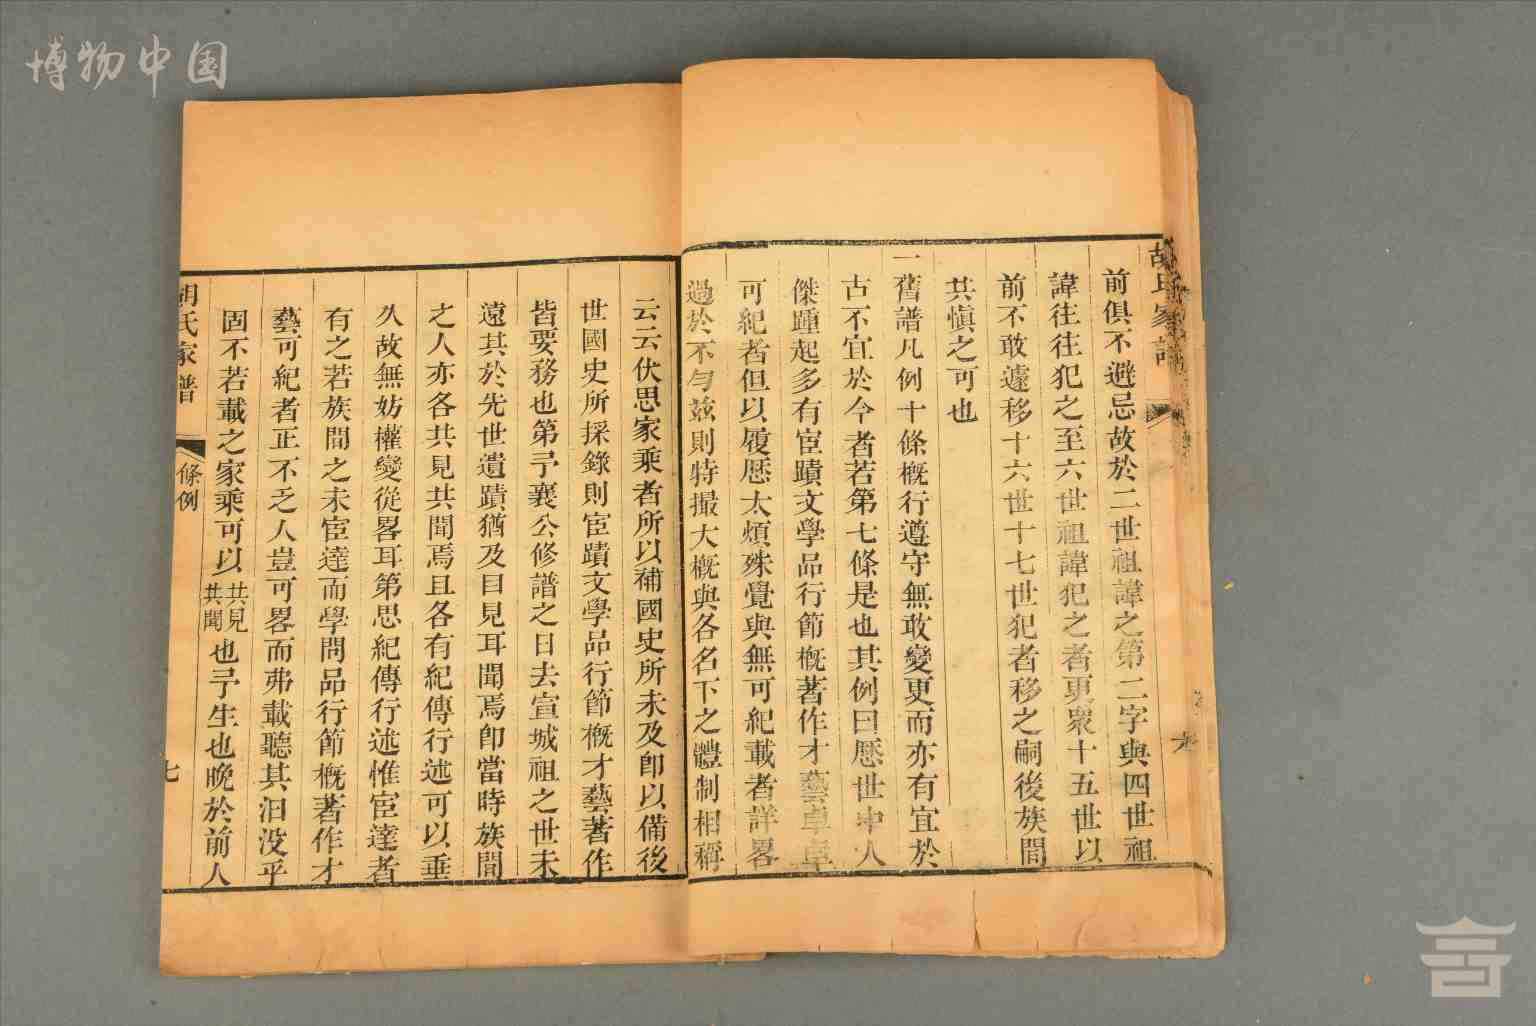 博物中国
前俱不避忌故於二世祖諱之第二字與四世祖
諱往往犯之至六世祖諱犯之者更衆十五世以
前不敢遽移十六世十七世犯者移之嗣後族間
共愼之可也
一舊譜凡例十條槪行遵守無敢變更而亦有宜於
古不宜於今者若第七條是也其例曰歷世中人
傑踵起多有宦蹟文學品行節槪著作才藝卓卓
可紀者但以履歷太煩殊覺與無可紀載者詳畧
過於不勻茲則特撮大槪與各名下之體制相稱
云云伏思家乘者所以補國史所未及卽以備後
世國史所採錄則宦蹟文學品行節槪才藝著作
皆要務也第予襄公修譜之日去宣城祖之世未
遠其於先世遺蹟猶及目見耳聞焉卽當時族間
之人亦各共見共聞焉且各有紀傳行述可以垂
久故無妨權變從畧耳第思紀傳行述惟宦達者
有之若族間之未宦達而學問品行節槪著作才
藝可紀者正不乏人豈可畧而弗載聽其汨沒乎
固不若載之家乘可以共見共聞也予生也晚於前人
胡氏家譜
條例
七